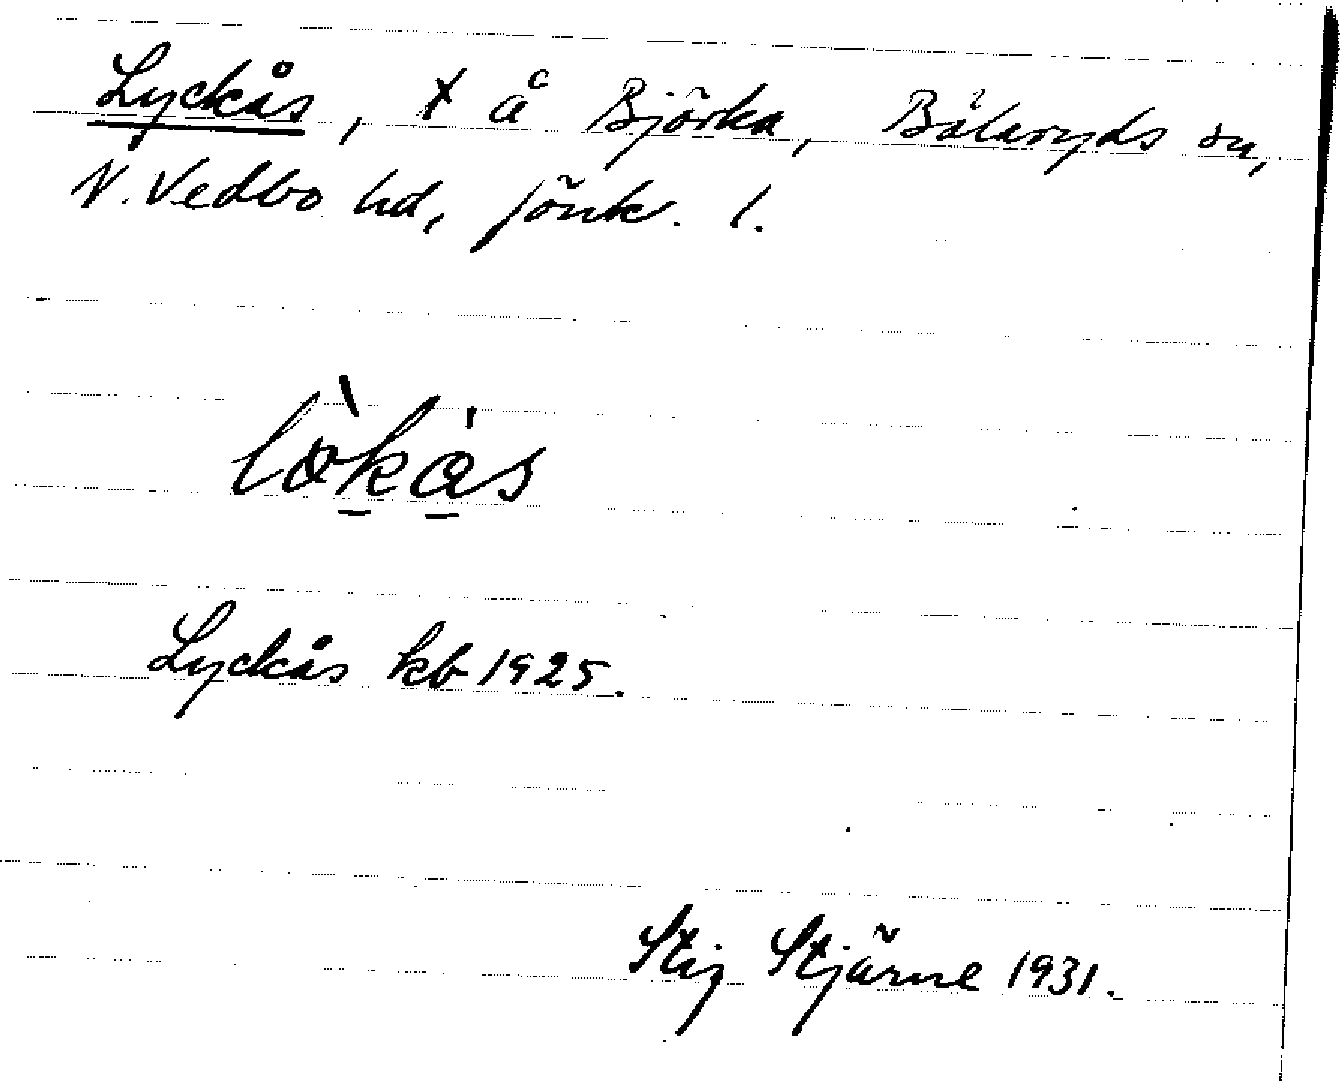 Lyckås, x å Björka, Bälaryds sn,
N. Vedbo hd, Jönk. l.
lø̀kås
Lyckås kb 1925.
Stig Stjärne 1931.